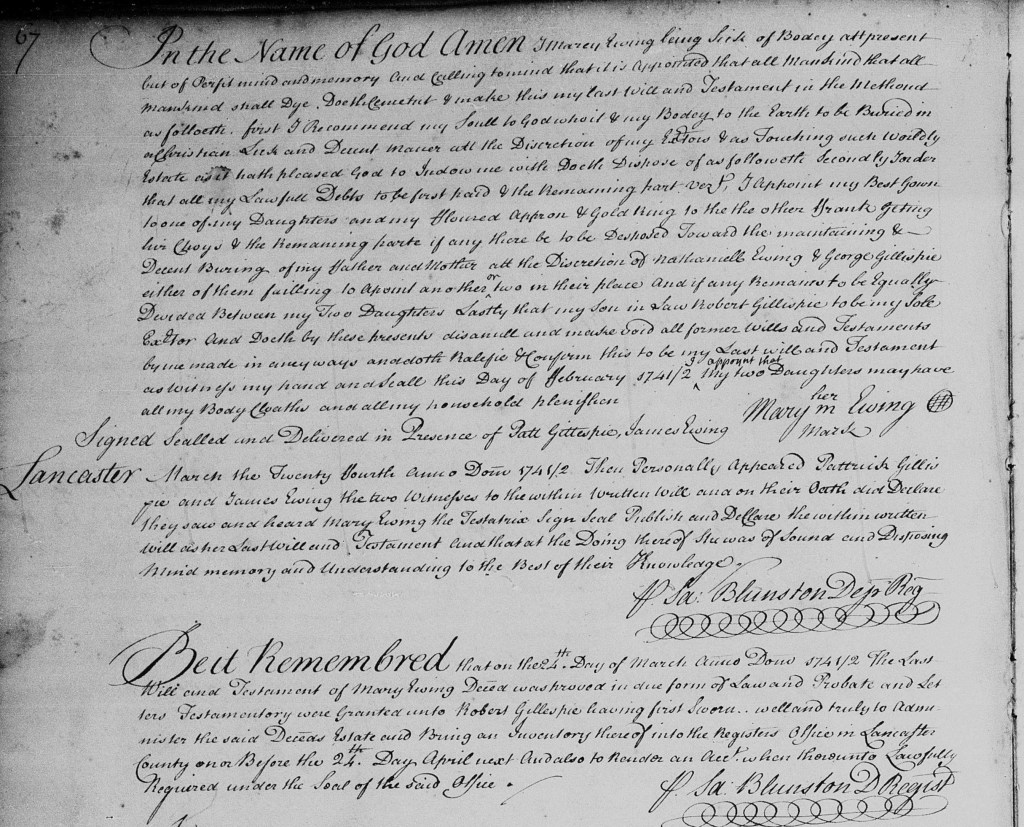 67
In the Name of God Amen I Marey Ewing being Sick of Bodey att present
but of Perfit mind and memory And Calling to mind that it is Appointed that all Mankind that all
Mankind shall Dye. Doeth & make this my last Will and Testament in the Methoud
as followeth. first I Recommend my Soull to God who it & my Bodey to the Earth to be Buried in
a Christian Lick and Decent maner att the Discretion of my Extors & as Touching such Worldly
Estate as it hath pleased God to Indow me with Doeth Dispose of as followeth Secondly I order
that all my Lawfull Debts to be first paid & the Remaining part I Appoint my Best Gown
to one of my Daughters and my floured Appron & Gold Ring to the the other Geting
hir Choys & the Remaining parte if any there be to be Desposed Toward the maintaining &
Decent Buring of my father and Mother att the Discretion of Nathaniell Ewing & George Gillispie
either of them failling to Apoint another or two in their place And if any Remains to be Equally
Devided Between my Two Daughters Lastly that my Son in Law Robert Gillispie to be my Sole
Extor And Doeth by these presents disanull and make void all former Wills and Testaments
by me made in aney ways and doth Ratefie & Confirm this to be my Last will and Testament
as Witness my hand and Seall this Day of february 1741/2 I appoynt that My two Daughters may have
all my Body Cloaths and all my household plenishen
her
Mary m Ewing
Mark
Signed Sealled and Delivered in Presence of Patt Gillespie, James Ewing
Lancaster March the Twenty fourth Anno Dom 1741/2. Then Personally Appeared Pattrick Gillis
pie and James Ewing the two Witnesses to the within Written Will and on their Oath did Declare
they saw and heard Mary Ewing the Testatrix Sign Seal Publish and Declare the within written
Will as her Last Will and Testament And that at the Doing thereof She was of Sound and Disposing
Mind memory and Understanding to the Best of their Knowledge.
P. Sa: Blunston Depr Reg
Be it Remembred that on the 24th. Day of March Anno Dom 1741/2 The Last
Will and Testament of Mary Ewing Deced was proved in due form of Law and Probate and Let
ters Testamentory were Granted unto Robert Gillespie having first Sworn.. well and truly to Admi-
nister the said Deceds Estate and Bring an Inventory thereof into the Registers Office in Lancaster
County on or Before the 24th. Day April next And also to Render an Acct. when thereunto Lawfully
Required under the Seal of the said Office.
P. Sa: Blunston D Regist